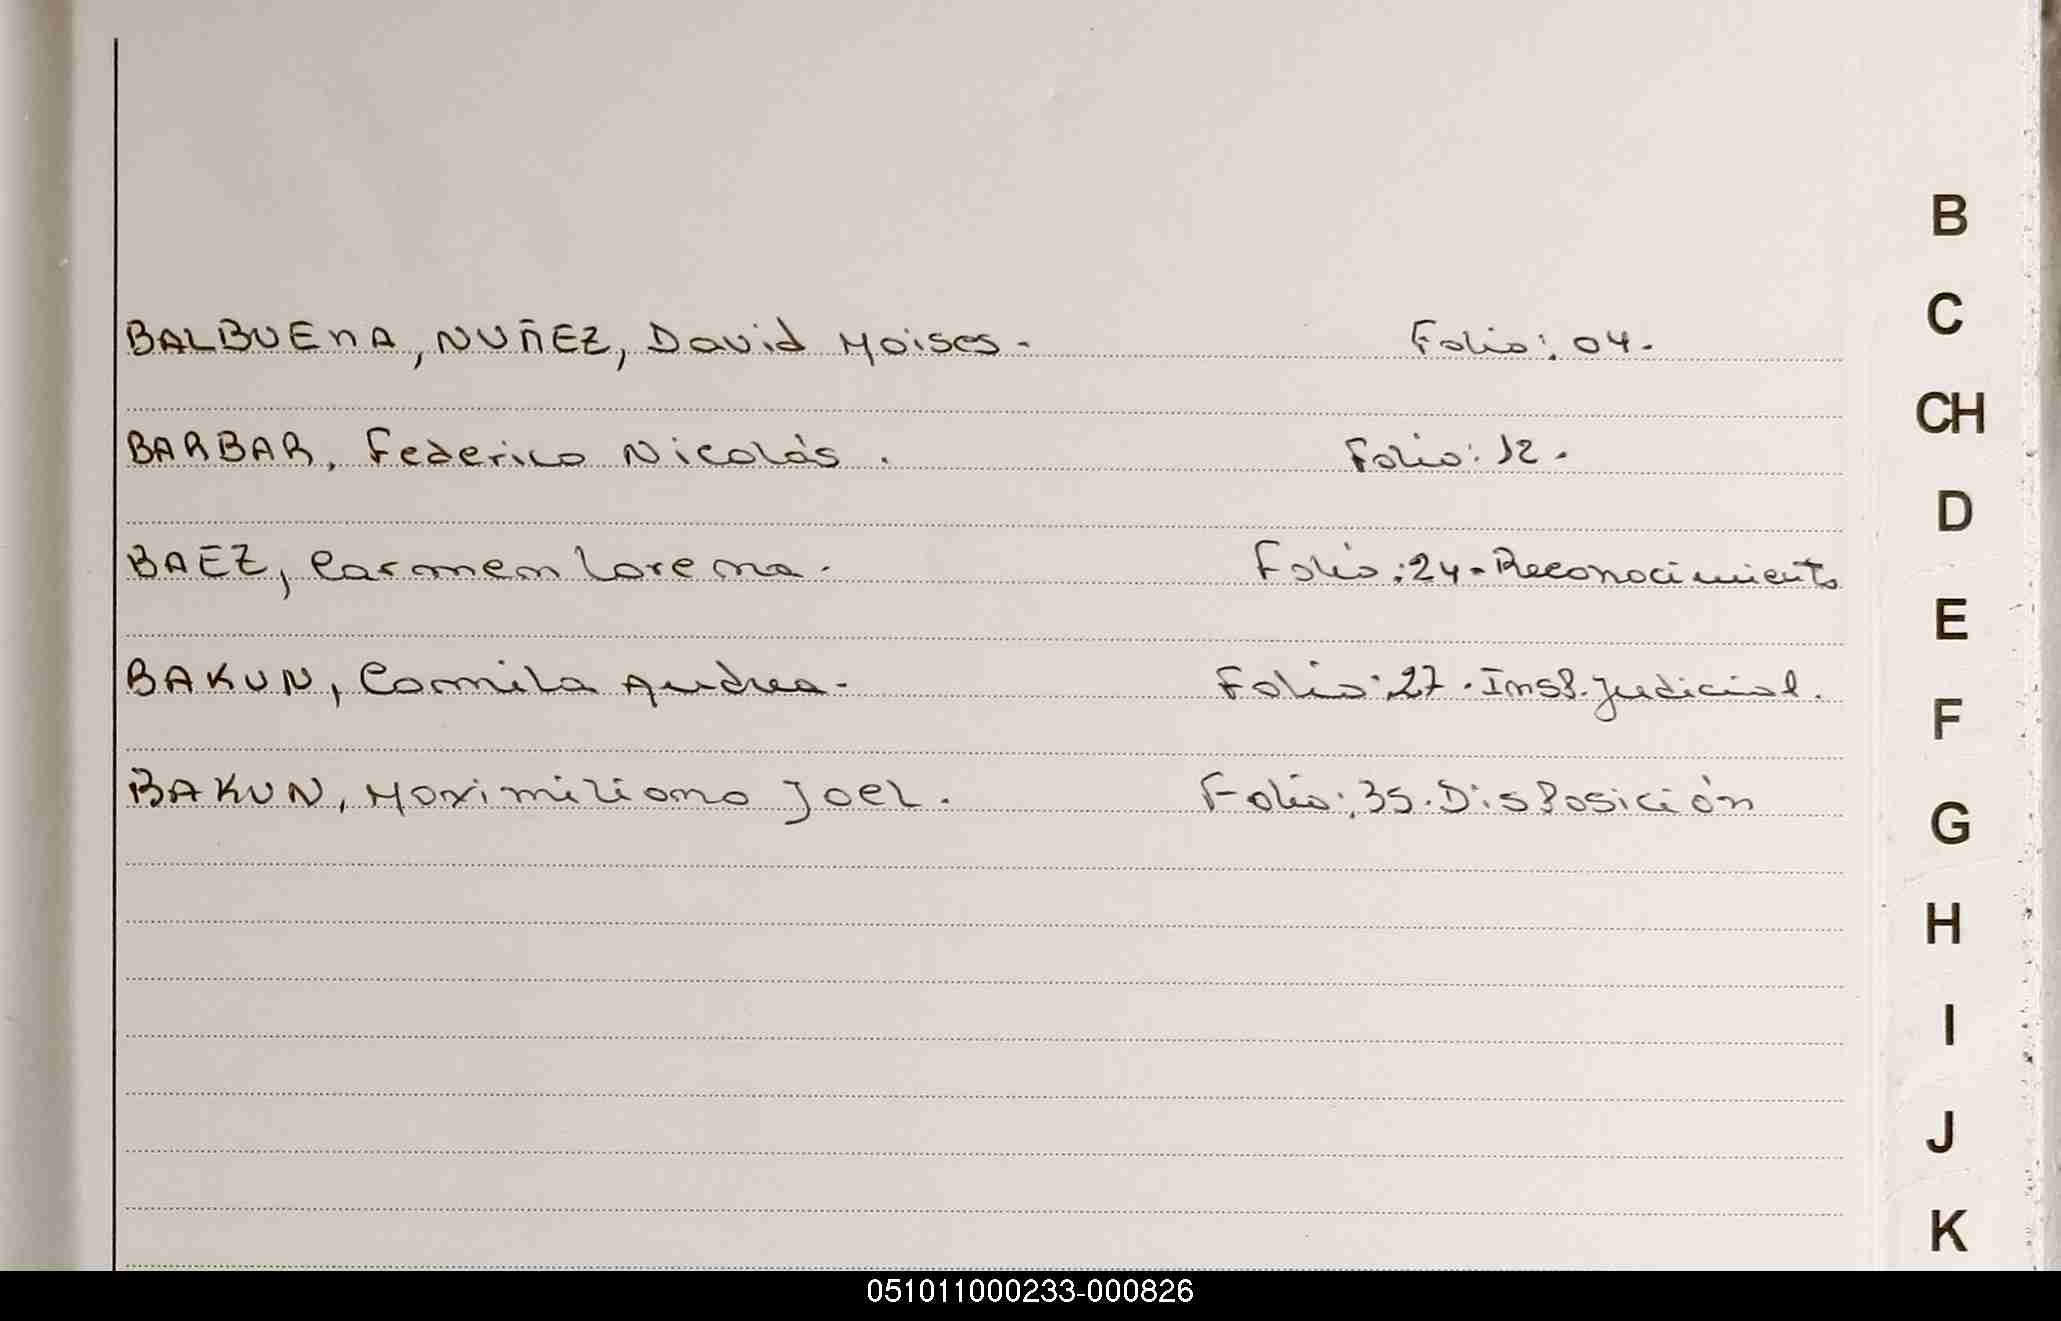 BALBUENA, NUÑEZ, David Moises. Folio: 04.
BARBAR, Federico Nicolás. Folio: 12.
BAEZ, Carmen Lorena. Folio: 24. Reconocimiento
BAKUN, Camila Andrea. Folio: 27. Insp. judicial.
BAKUN, Maximiliano Joel. Folio: 35. Disposición
B
C
CH
D
E
F
G
H
I
J
K
051011000233-000826